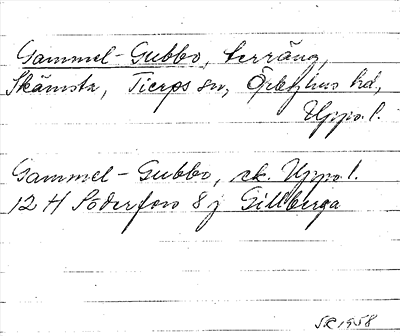 Gammel-Gubbo, terräng,
Skämsta, Tierps sn, Örbyhus hd,
Uppo. l.
Gammel-Gubbo, ek. Uppo. l.
12 H Söderfors 8 j Gillberga
SR 1958